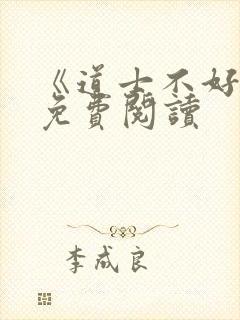 《道士不好
免費閱讀
李成良